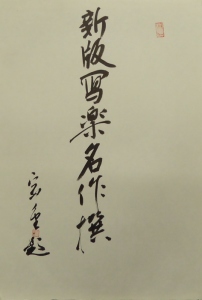 新版写楽名作撰